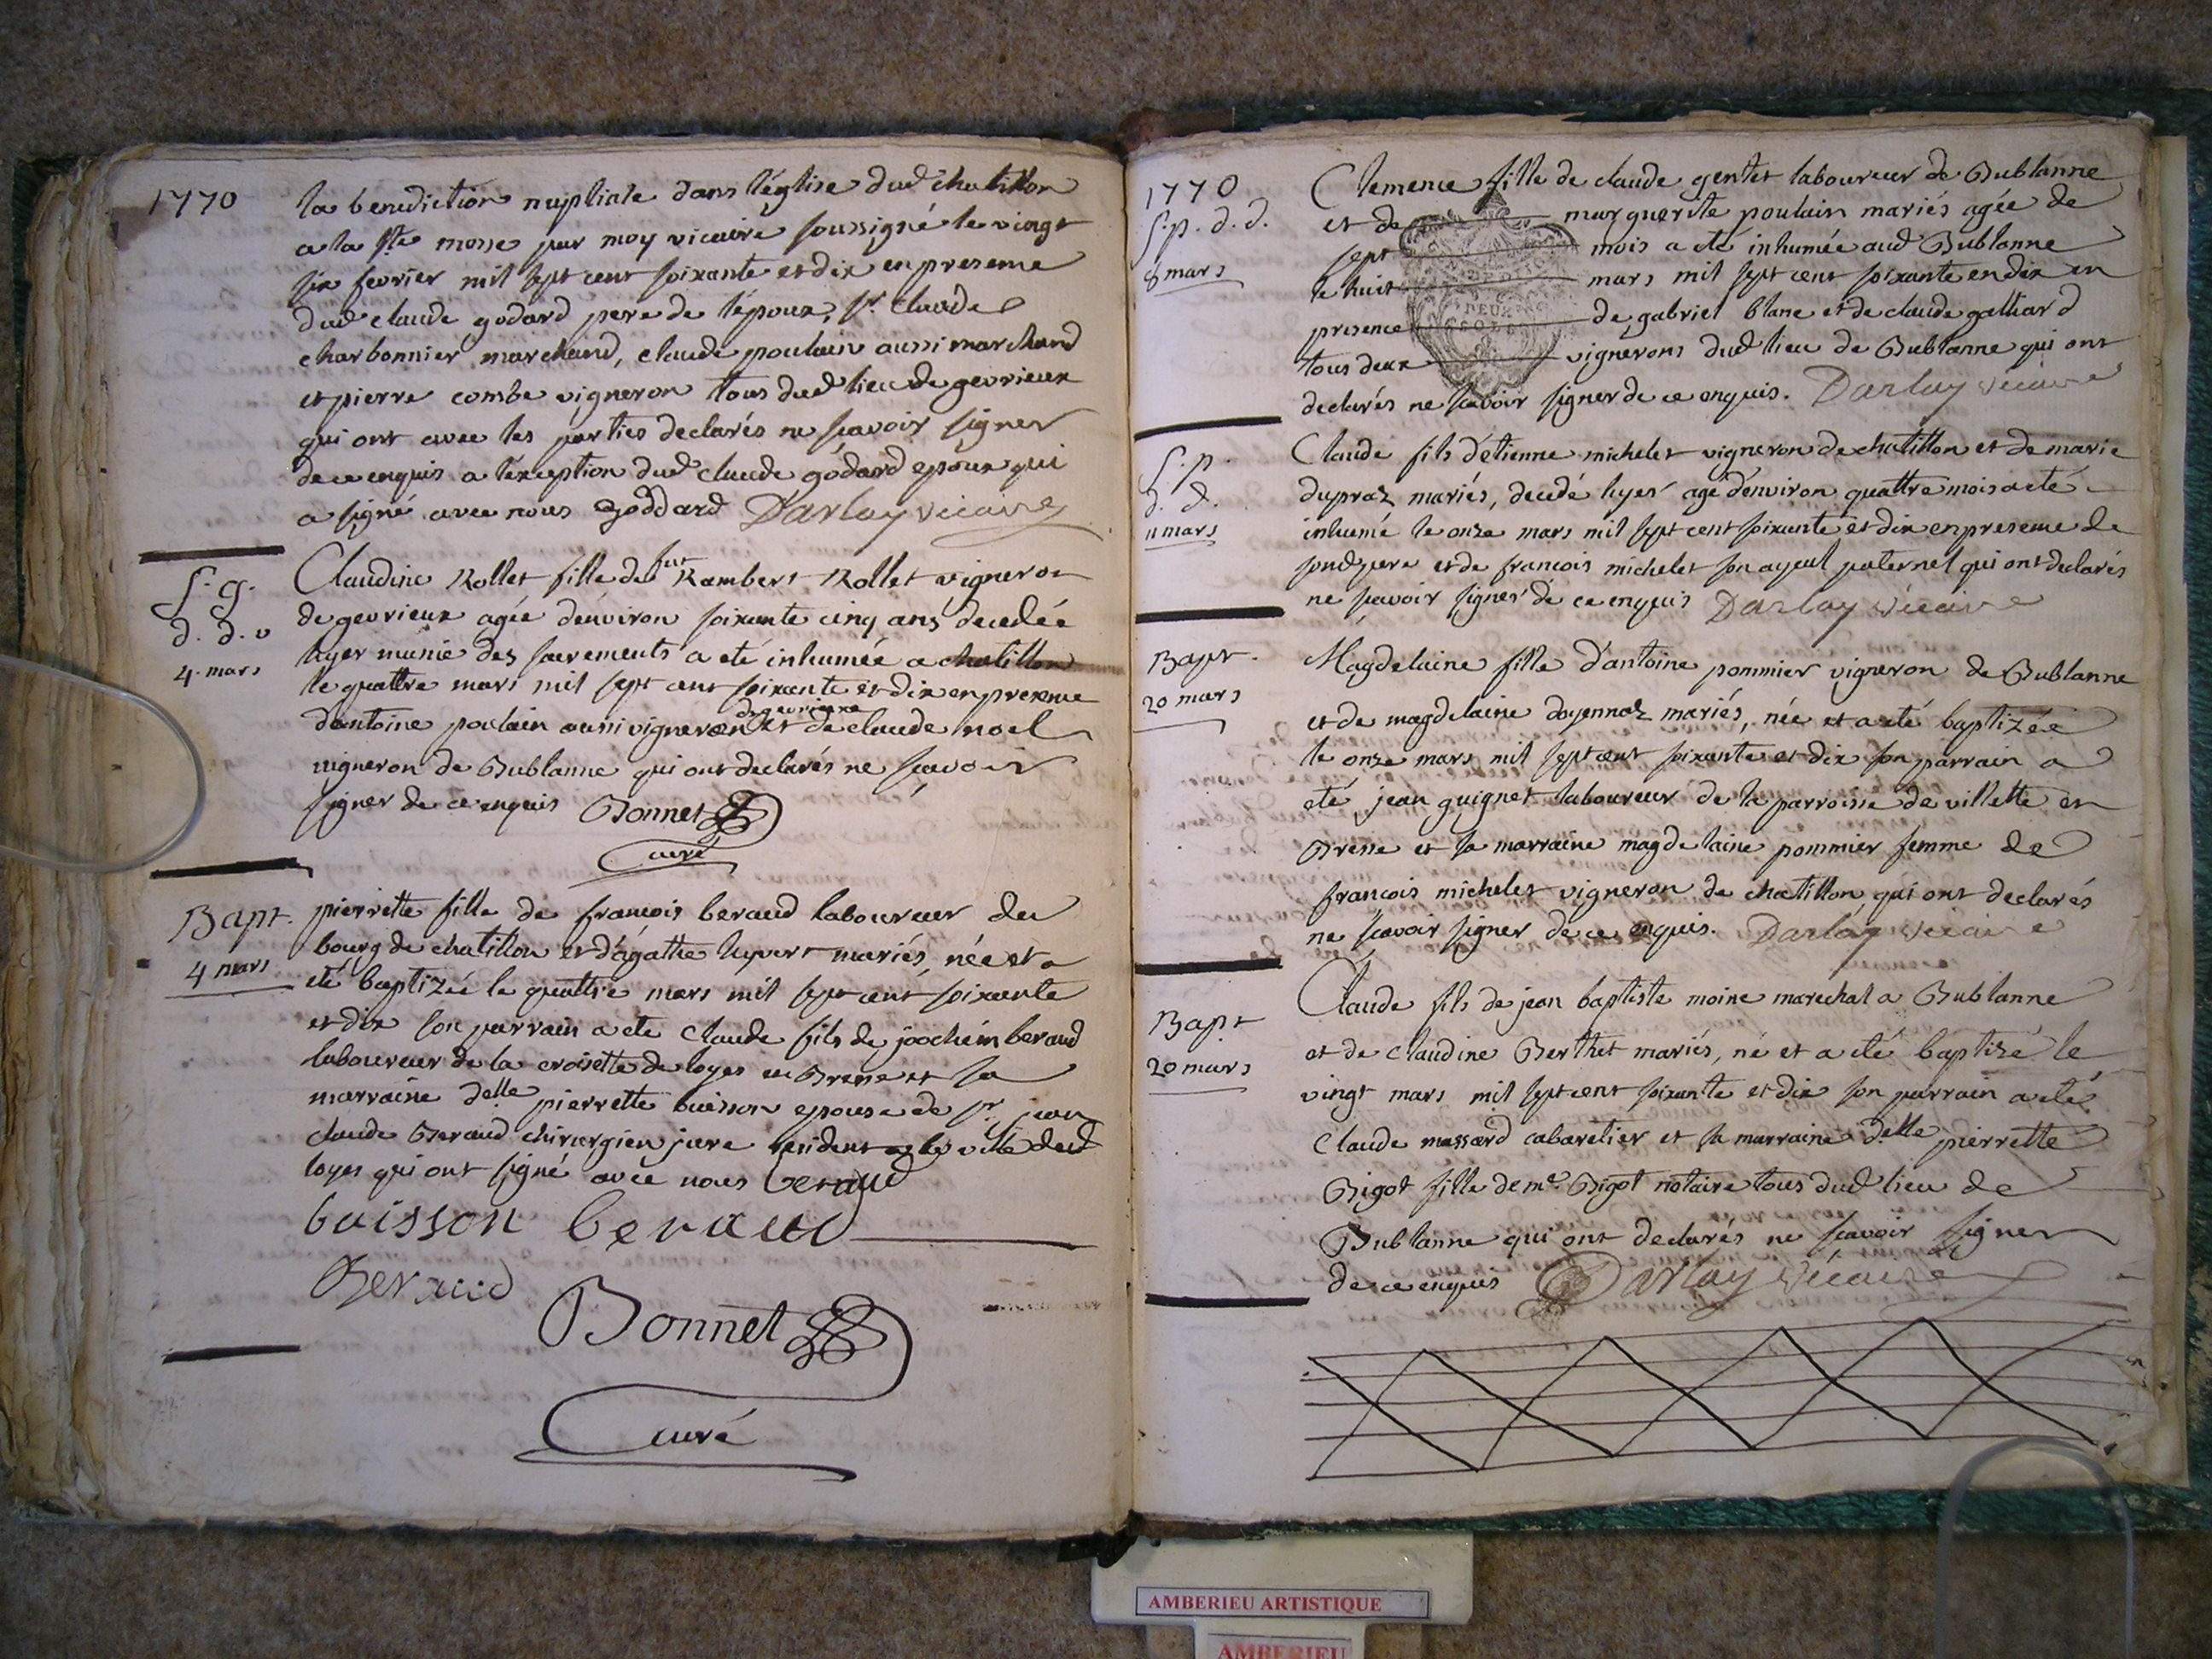 1770
la benediction nuptiale dans l'église dud chatillon
a la ste messe par moy vicaire soussigné le vingt
six fevrier mil sept cent soixante et dix en presence
dud claude godard pere de l'époux, sr claude
charbonnier marchand, claude poulain aussi marchand
et pierre combe vigneron tous dud lieu de gevrieux
qui ont avec les parties declarés ne scavoir signer
de ce enquis a l'exception dud claude godard epoux qui
a signé avec nous Goddard Darlay vicaire
S. g.
d. d. v
4. mars
Claudine Rollet fille de feu Rambert Rollet vigneron
de gevrieux agée d'environ soixante cinq ans decedée
hyer munie des sacrements a eté inhumée a chatillon
le quattre mars mil sept cent soixante et dix en presence
d'antoine poulain aussi vigneron de gevrieux et de claude noel
vigneron de Bublanne qui ont declarés ne scavoir
signer de ce enquis Bonnet
curé
Bapt.
4 mars
pierrette fille de francois beraud laboureur du
bourg de chatillon et d'agathe hyvert mariés, née et a
eté baptizée le quattre mars mil sept cent soixante
et dix son parrain a eté claude fils de joachim beraud
laboureur de la croisette de loyes en Bresse et sa
marraine delle pierrette buisson epouse de sr jean
claude Beraud chirurgien juré resident a la ville dud
loyes qui ont signé avec nous beraud
buisson beraud
Beraud
Bonnet
Curé
1770
S. p. d. d.
8 mars
Clemence fille de claude gentet laboureur de Bublanne
et de marguerite poulain mariés agée de
sept mois a eté inhumée aud Bublanne
le huit mars mil sept cent soixante en dix en
presence de gabriel blanc et de claude galliard
tous deux vignerons dud lieu de Bublanne qui ont
declarés ne scavoir signer de ce enquis. Darlay vicaire
S. p.
d. d.
11 mars
Claude fils d'etienne michelet vigneron de chatillon et de marie
dupraz mariés, decedé hyer agé d'environ quattre mois a eté
inhumé le onze mars mil sept cent soixante et dix en presence de
sond pere et de francois michelet son ayeul paternel qui ont declarés
ne scavoir signer de ce enquis Darlay vicaire
Bapt.
20 mars
Magdelaine fille d'antoine pommier vigneron de Bublanne
et de magdelaine doyennaz mariés, née et a eté baptizée
le onze mars mil sept cent soixante et dix son parrain a
eté jean guignet laboureur de la parroisse de villette en
Bresse et sa marraine magdelaine pommier femme de
francois michelet vigneron de chatillon qui ont declarés
ne scavoir signer de ce enquis. Darlay vicaire
Bapt
20 mars
Claude fils de jean baptiste moine marechal a Bublanne
et de claudine Berthet mariés, né et a eté baptizé le
vingt mars mil sept cent soixante et dix son parrain a eté
claude massard cabaretier et sa marraine delle pierrette
Bigot fille de me Bigot notaire tous dud lieu de
Bublanne qui ont declarés ne scavoir signer
de ce enquis Darlay vicaire
AMBERIEU ARTISTIQUE
AMBERIEU